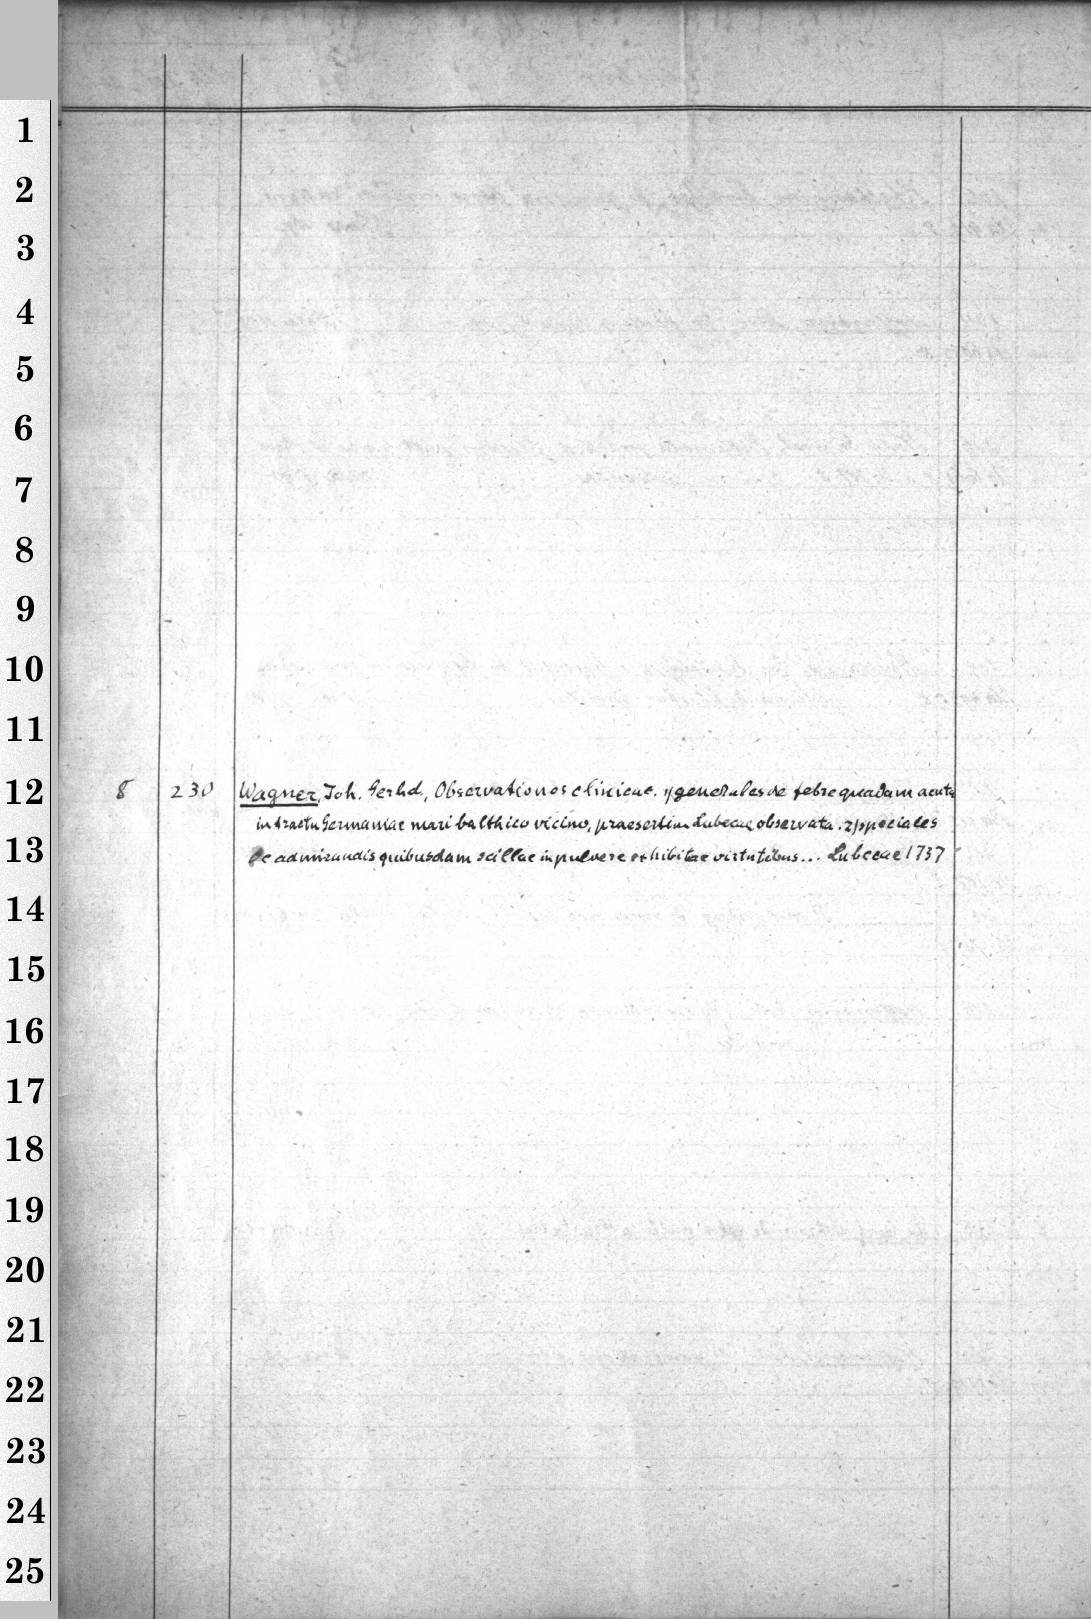 1
2
3
4
5
6
7
8
9
10
11
12 8 230 Wagner, Joh. Gerhd., Observationes clinicae. 1) generales de febre quadam acuta
in tractu Germaniae mari balthico vicino, praesertim Lubecae observata. 2) speciales
13 de admirandis quibusdam scillae in pulvere exhibitae virtutibus... Lubecae 1737
14
15
16
17
18
19
20
21
22
23
24
25